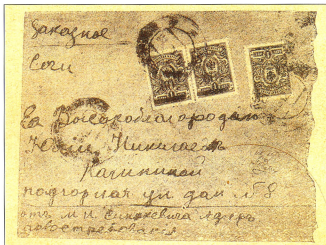 Заказное
Сочи
Ея Высокоблагородию
Юлии Николаевне
Калининой
подгорная ул дом № 8
отъ М И Синакевича Адлеръ
довостребования